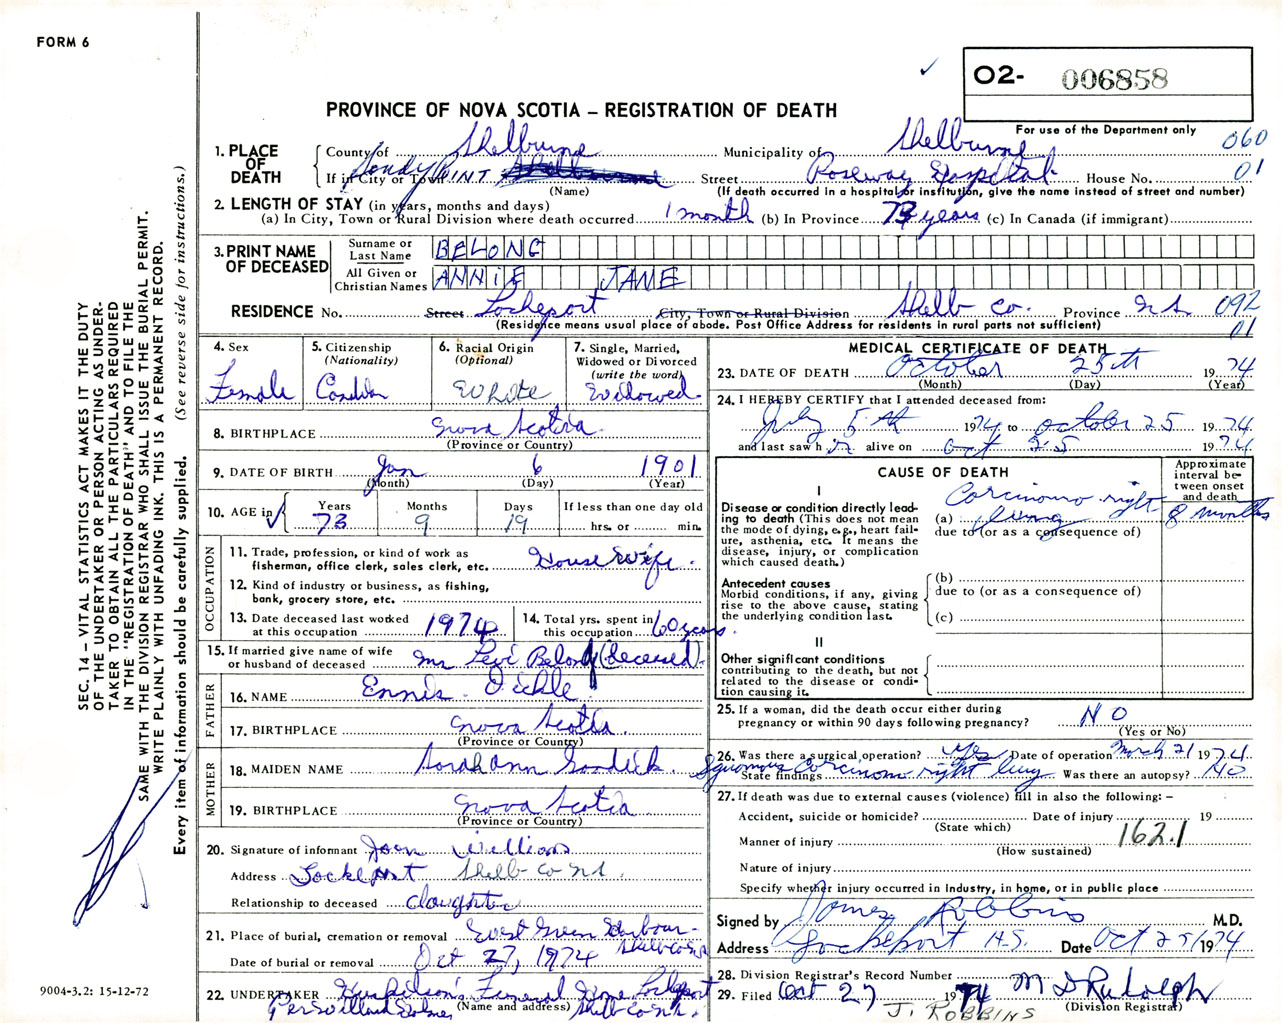 FORM 6
O2- 006858
PROVINCE OF NOVA SCOTIA – REGISTRATION OF DEATH
For use of the Department only
060
01
1. PLACE OF DEATH
County of Shelburne Municipality of Shelburne
If in City or Town Sandy POINT Street Roseway Hospital House No.
(Name) (If death occurred in a hospital or institution, give the name instead of street and number)
2. LENGTH OF STAY (in years, months and days)
(a) In City, Town or Rural Division where death occurred 1 month (b) In Province 73 years (c) In Canada (if immigrant)
3. PRINT NAME OF DECEASED
Surname or Last Name BELONG
All Given or Christian Names ANNIE JANE
RESIDENCE No. Street Lockeport City, Town or Rural Division Shelb Co. Province N.S. 092
(Residence means usual place of abode. Post Office Address for residents in rural parts not sufficient) 01
4. Sex
Female
5. Citizenship
(Nationality)
6. Racial Origin
(Optional)
White
7. Single, Married,
Widowed or Divorced
(write the word)
Widowed
8. BIRTHPLACE Nova Scotia
(Province or Country)
9. DATE OF BIRTH Jan 6 1901
(Month) (Day) (Year)
10. AGE in Years 73 Months 9 Days 19 If less than one day old
hrs. or min.
OCCUPATION
11. Trade, profession, or kind of work as
fisherman, office clerk, sales clerk, etc. House Wife.
12. Kind of industry or business, as fishing,
bank, grocery store, etc.
13. Date deceased last worked
at this occupation 1974
14. Total yrs. spent in
this occupation 60 years.
15. If married give name of wife
or husband of deceased Mr Levi Belong (deceased).
FATHER
16. NAME Ennis
17. BIRTHPLACE Nova Scotia.
(Province or Country)
MOTHER
18. MAIDEN NAME Sarah Ann
19. BIRTHPLACE Nova Scotia
(Province or Country)
20. Signature of informant Joan Williams
Address Lockeport Shelb Co N.S.
Relationship to deceased daughter
21. Place of burial, cremation or removal West Green Harbour Shelb Co N.S.
Date of burial or removal Oct 27, 1974
22. UNDERTAKER Funeral Home Lockeport
(Name and address) Shelb Co N.S.
Per Willard
MEDICAL CERTIFICATE OF DEATH
23. DATE OF DEATH October 25th 1974
(Month) (Day) (Year)
24. I HEREBY CERTIFY that I attended deceased from:
July 5th 1974 to October 25 1974
and last saw her alive on Oct 25 1974
CAUSE OF DEATH
Approximate interval between onset and death
I
Disease or condition directly leading to death (This does not mean the mode of dying, e.g., heart failure, asthenia, etc. It means the disease, injury, or complication which caused death.)
(a) Carcinoma right lung 8 months
due to (or as a consequence of)
Antecedent causes
Morbid conditions, if any, giving rise to the above cause, stating the underlying condition last.
(b)
due to (or as a consequence of)
(c)
II
Other significant conditions
contributing to the death, but not related to the disease or condition causing it.
25. If a woman, did the death occur either during
pregnancy or within 90 days following pregnancy? NO
(Yes or No)
26. Was there a surgical operation? Yes Date of operation March 21 1974
State findings Squamous Carcinoma right lung Was there an autopsy? NO
27. If death was due to external causes (violence) fill in also the following: –
Accident, suicide or homicide? Date of injury 19
(State which)
Manner of injury 162.1
(How sustained)
Nature of injury
Specify whether injury occurred in industry, in home, or in public place
Signed by James Robbins M.D.
Address Lockeport N.S. Date Oct 25/1974
28. Division Registrar's Record Number
29. Filed Oct 27 1974 M D Rudolph
(Division Registrar)
J. ROBBINS
SEC. 14 – VITAL STATISTICS ACT MAKES IT THE DUTY
OF THE UNDERTAKER OR PERSON ACTING AS UNDER-
TAKER TO OBTAIN ALL THE PARTICULARS REQUIRED
IN THE "REGISTRATION OF DEATH" AND TO FILE THE
SAME WITH THE DIVISION REGISTRAR WHO SHALL ISSUE THE BURIAL PERMIT.
WRITE PLAINLY WITH UNFADING INK. THIS IS A PERMANENT RECORD.
Every item of information should be carefully supplied. (See reverse side for instructions.)
9004-3.2: 15-12-72